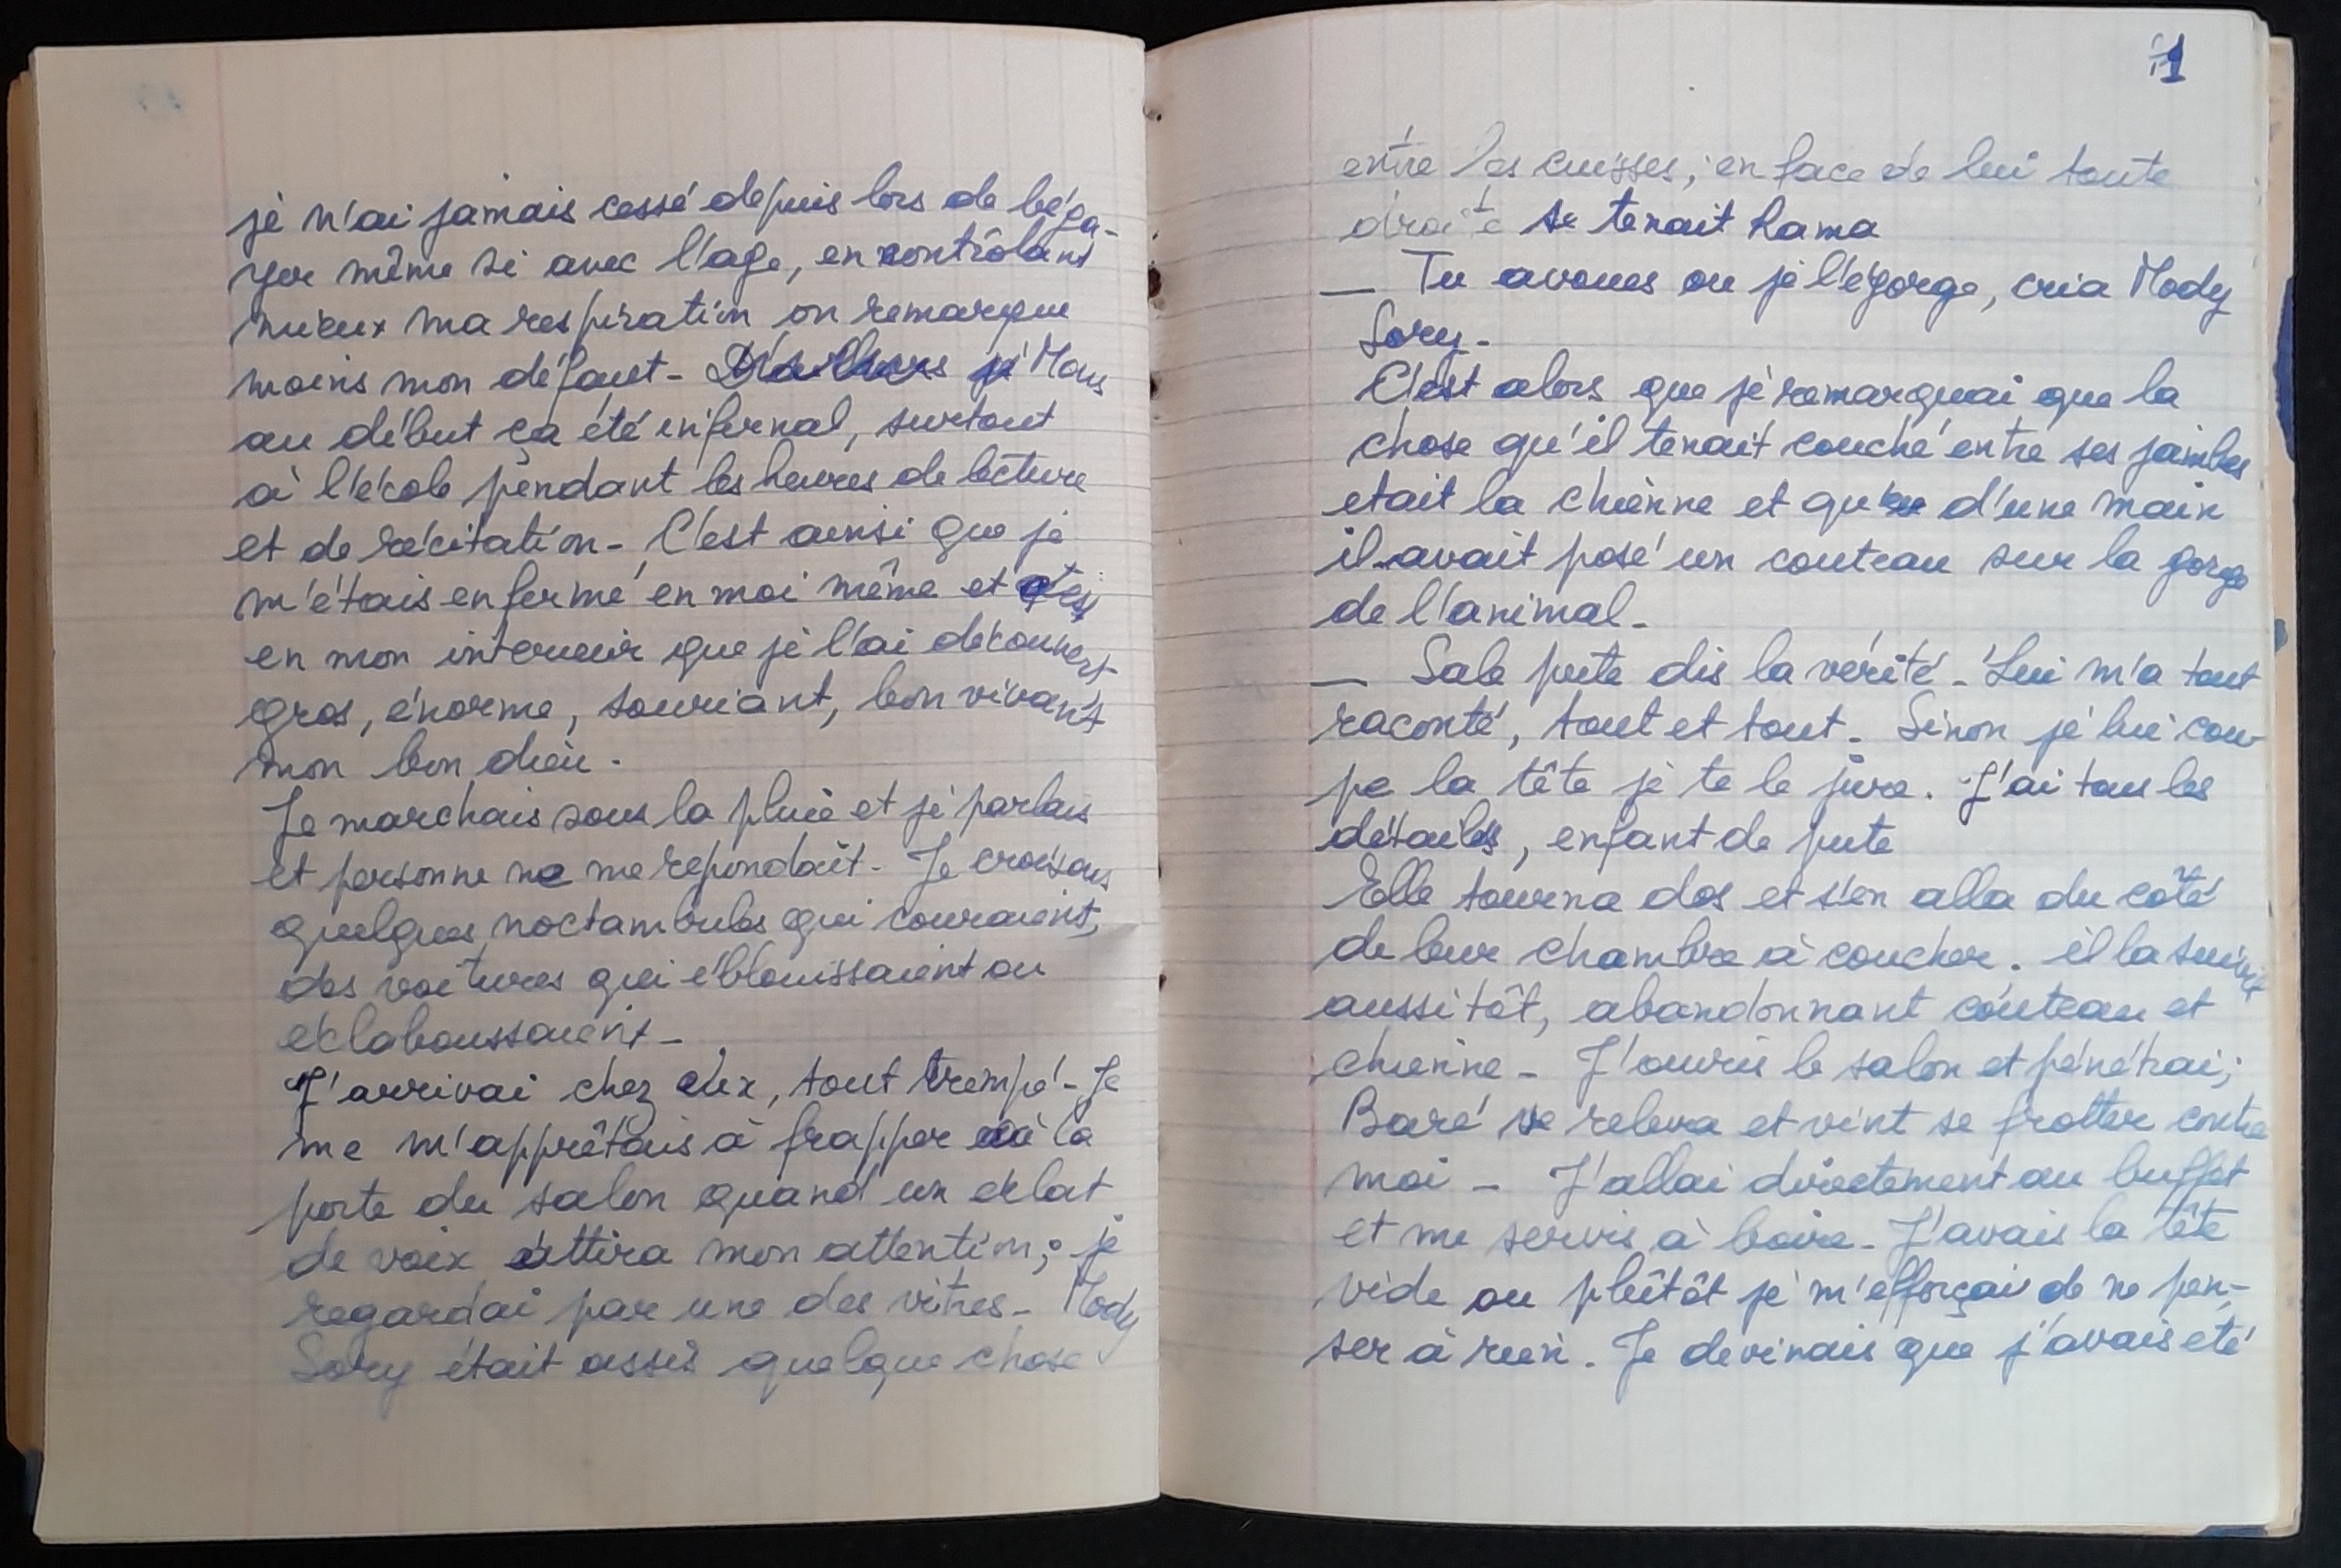 je n'ai jamais cessé depuis lors de béga-
yer même si avec l'age, en contrôlant
mieux ma respiration on remarque
moins mon défaut - D'ailleurs je Mais
au début ça été infernal, surtout
à l'école pendant les heures de lecture
et de récitation - C'est ainsi que je
m'étais enfermé en moi même et c'est
en mon interieur que je l'ai découvert
gros, énorme, souriant, bon vivant
mon bon dieu.
Je marchais sous la pluie et je parlais
et personne ne me repondait - Je croisais
quelques noctambules qui couraient,
des voitures qui éblouissaient ou
eclaboussaient -
J'arrivai chez eux, tout trempé - Je
me m'apprêtais à frapper à la
porte du salon quand un eclat
de voix attira mon attention; je
regardai par une des vitres - Mody
Sory était assis quelque chose
1
entre les cuisses; en face de lui toute
droite se tenait Rama
— Tu avoues ou je l'égorge, cria Mody
Sory -
C'est alors que je remarquai que la
chose qu'il tenait couché entre ses jambes
etait la chienne et que d'une main
il avait posé un couteau sur la gorge
de l'animal -
— Sale pute dis la vérité - Lui m'a tout
raconté, tout et tout - Sinon je lui cou-
pe la tête je te le jure. J'ai tous les
détails, enfant de pute
Elle tourna dos et s'en alla du côté
de leur chambre à coucher. il la suivit
aussitôt, abandonnant couteau et
chienne - J'ouvris le salon et pénétrai;
Baré se releva et vint se frotter contre
moi - J'allai directement au buffet
et me servis à boire - J'avais la tête
vide ou plûtôt je m'efforçai de ne pen-
ser à rien. Je devinais que j'avais été